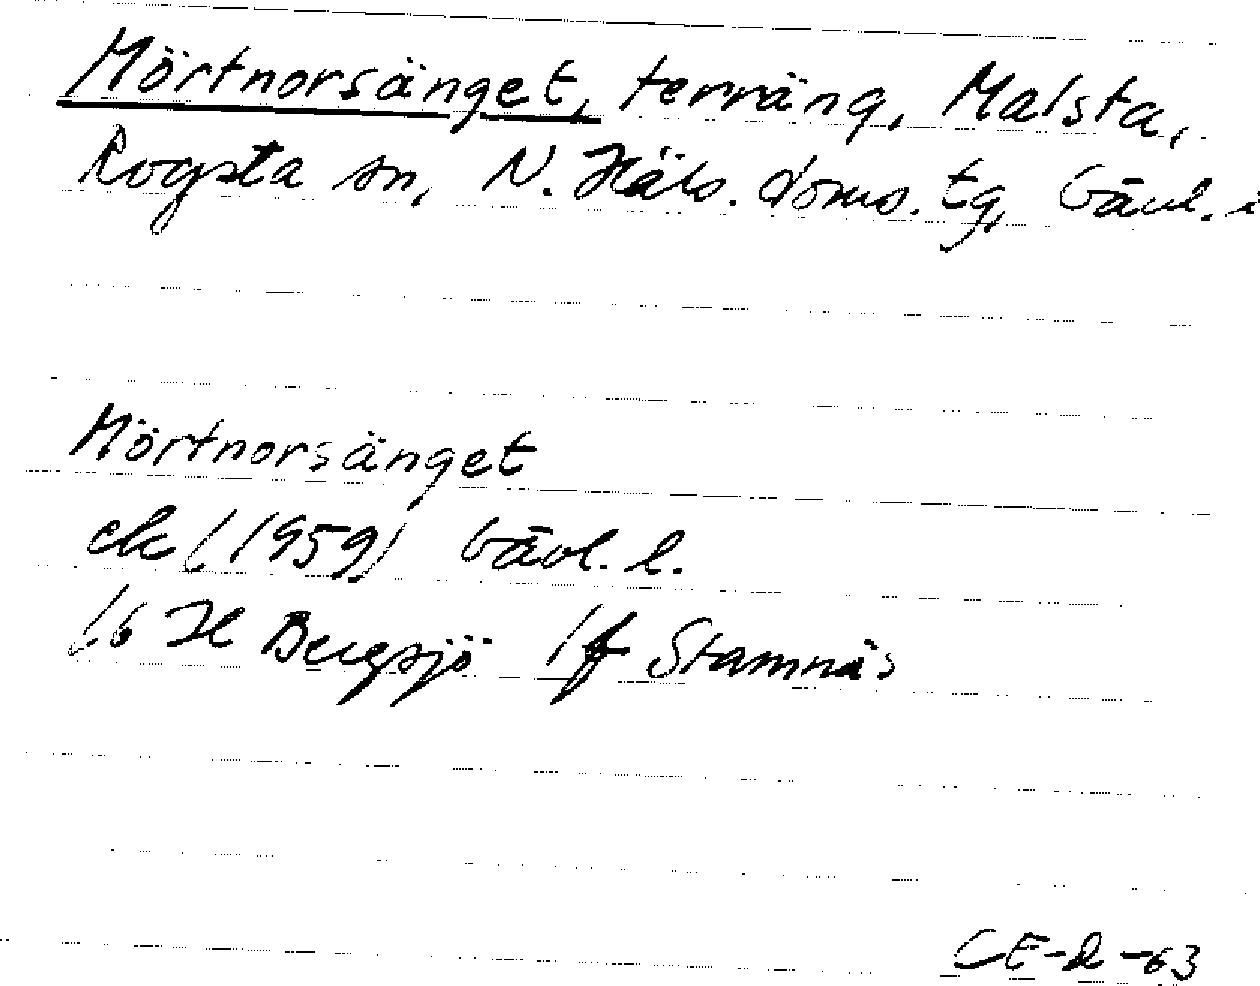 Mörtnorsänget, terräng, Malsta,
Rogsta sn, N. Häls. doms. tg, Gävl. l
Mörtnorsänget
ek (1959) Gävl. l.
16 H Bergsjö 1f Stamnäs
CE-R-63